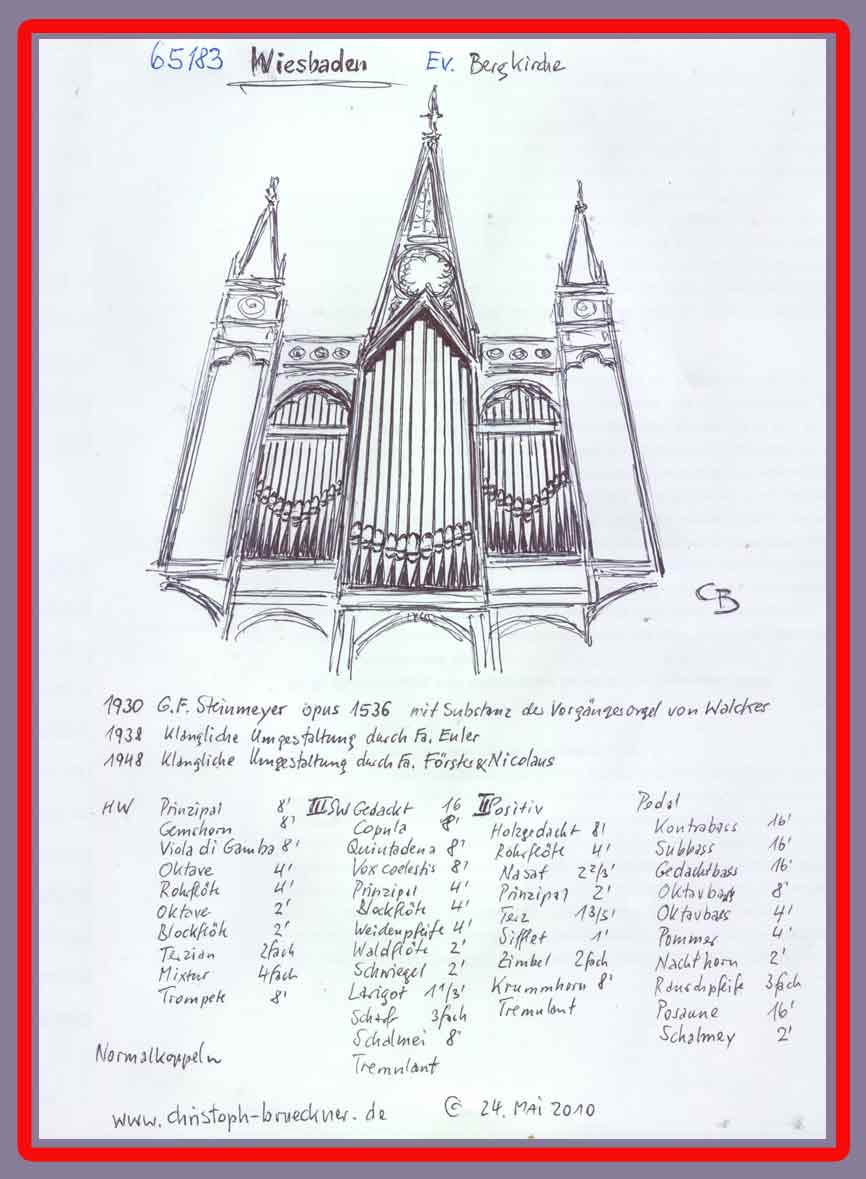 65183 Wiesbaden Ev. Bergkirche
CB
1930 G.F. Steinmeyer opus 1536 mit Substanz der Vorgängerorgel von Walcker
1938 Klangliche Umgestaltung durch Fa. Euler
1948 Klangliche Umgestaltung durch Fa. Förster & Nicolaus
HW
Prinzipal 8'
Gemshorn 8'
Viola di Gamba 8'
Oktave 4'
Rohrflöte 4'
Oktave 2'
Blockflöte 2'
Terzian 2fach
Mixtur 4fach
Trompete 8'
III SW
Gedackt 16
Copula 8'
Quintadena 8'
Vox coelestis 8'
Prinzipal 4'
Blockflöte 4'
Weidenpfeife 4'
Waldflöte 2'
Schwiegel 2'
Larigot 1 1/3'
Scharf 3fach
Schalmei 8'
Tremulant
II Positiv
Holzgedackt 8'
Rohrflöte 4'
Nasat 2 2/3'
Prinzipal 2'
Terz 1 3/5'
Sifflet 1'
Zimbel 2fach
Krummhorn 8'
Tremulant
Pedal
Kontrabass 16'
Subbass 16'
Gedacktbass 16'
Oktavbass 8'
Oktavbass 4'
Pommer 4'
Nachthorn 2'
Rauschpfeife 3fach
Posaune 16'
Schalmey 2'
Normalkoppeln
www.christoph-brueckner.de © 24. MAI 2010